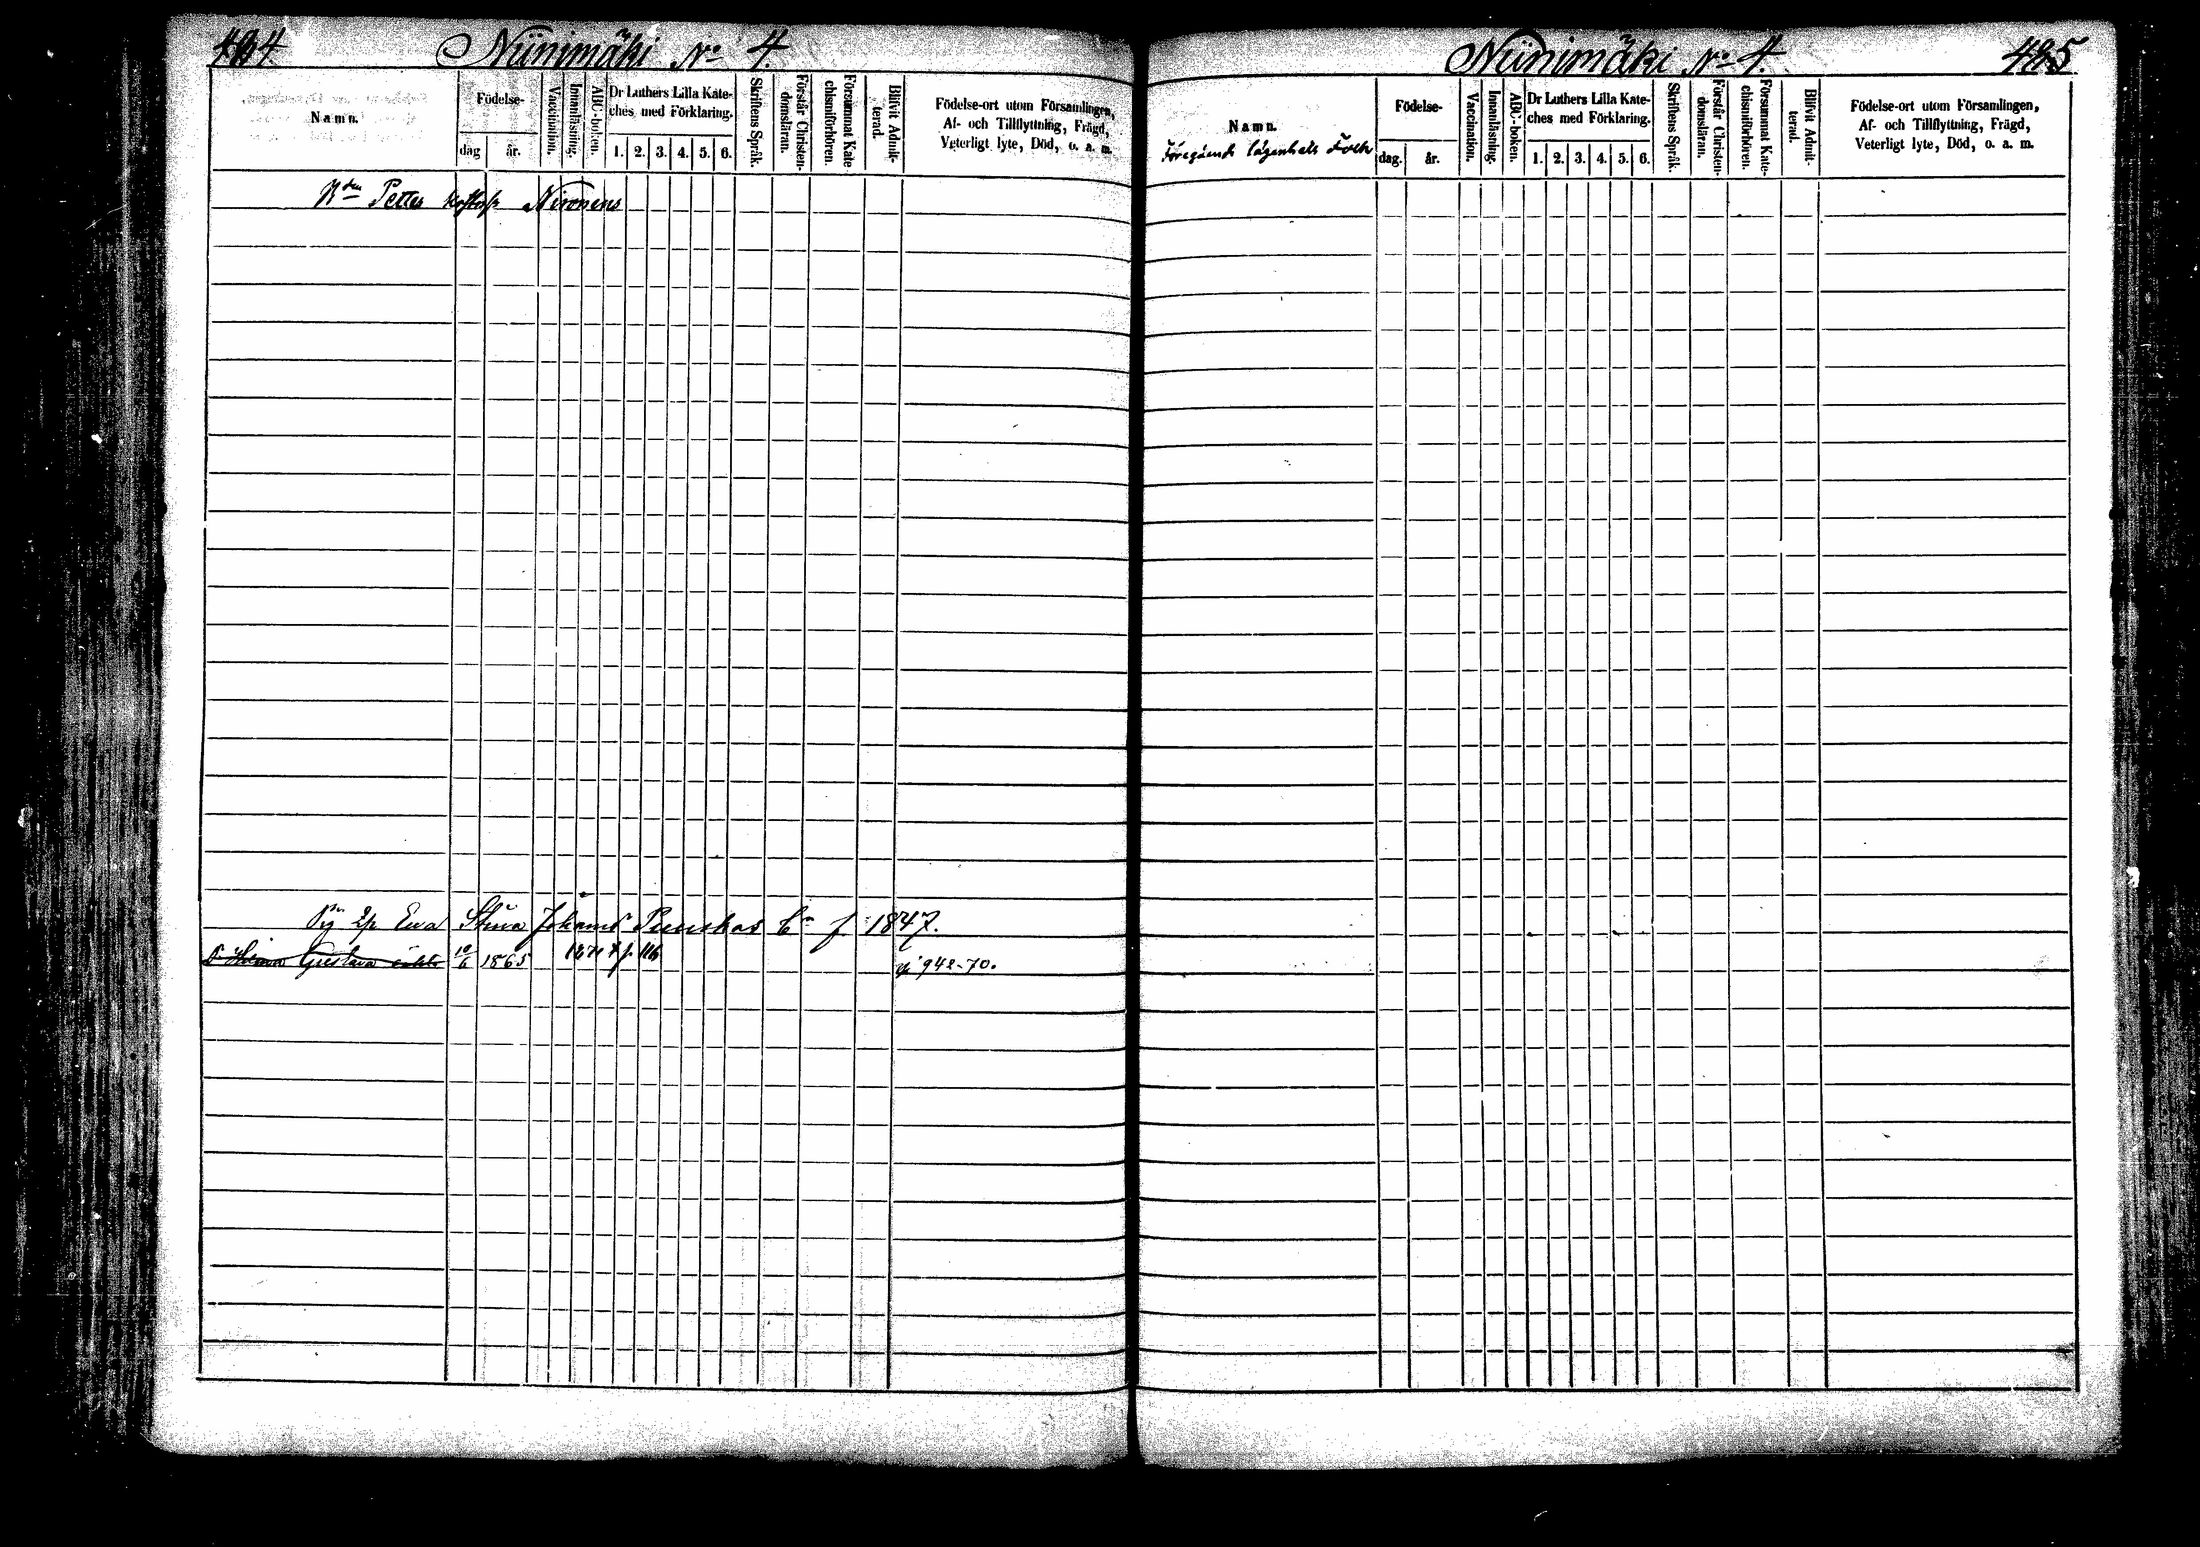 484.
Niinimäki No 4.
Namn.
Födelse-
dag
år.
Vaccination.
Innanläsning.
ABC-boken.
Dr Luthers Lilla Kate-
ches med Förklaring.
1. 2. 3. 4. 5. 6.
Skriftens Språk.
Förstår Christen-
domsläran.
Försummat Kate-
chismiförhören.
Blifvit Admit-
terad.
Födelse-ort utom Församlingen,
Af- och Tillflyttning, Frägd,
Veterligt lyte, Död, o. a. m.
Petter Niironens
Pig Ewa Stina Johansdr f 1847.
Gustava 10/6 1865 p. 116 942-70.
Niinimäki No 4.
485
Namn.
Föregående lägenhets Folk
Födelse-
dag.
år.
Vaccination.
Innanläsning.
ABC-boken.
Dr Luthers Lilla Kate-
ches med Förklaring.
1. 2. 3. 4. 5. 6.
Skriftens Språk.
Förstår Christen-
domsläran.
Försummat Kate-
chismiförhören.
Blifvit Admit-
terad.
Födelse-ort utom Församlingen,
Af- och Tillflyttning, Frägd,
Veterligt lyte, Död, o. a. m.